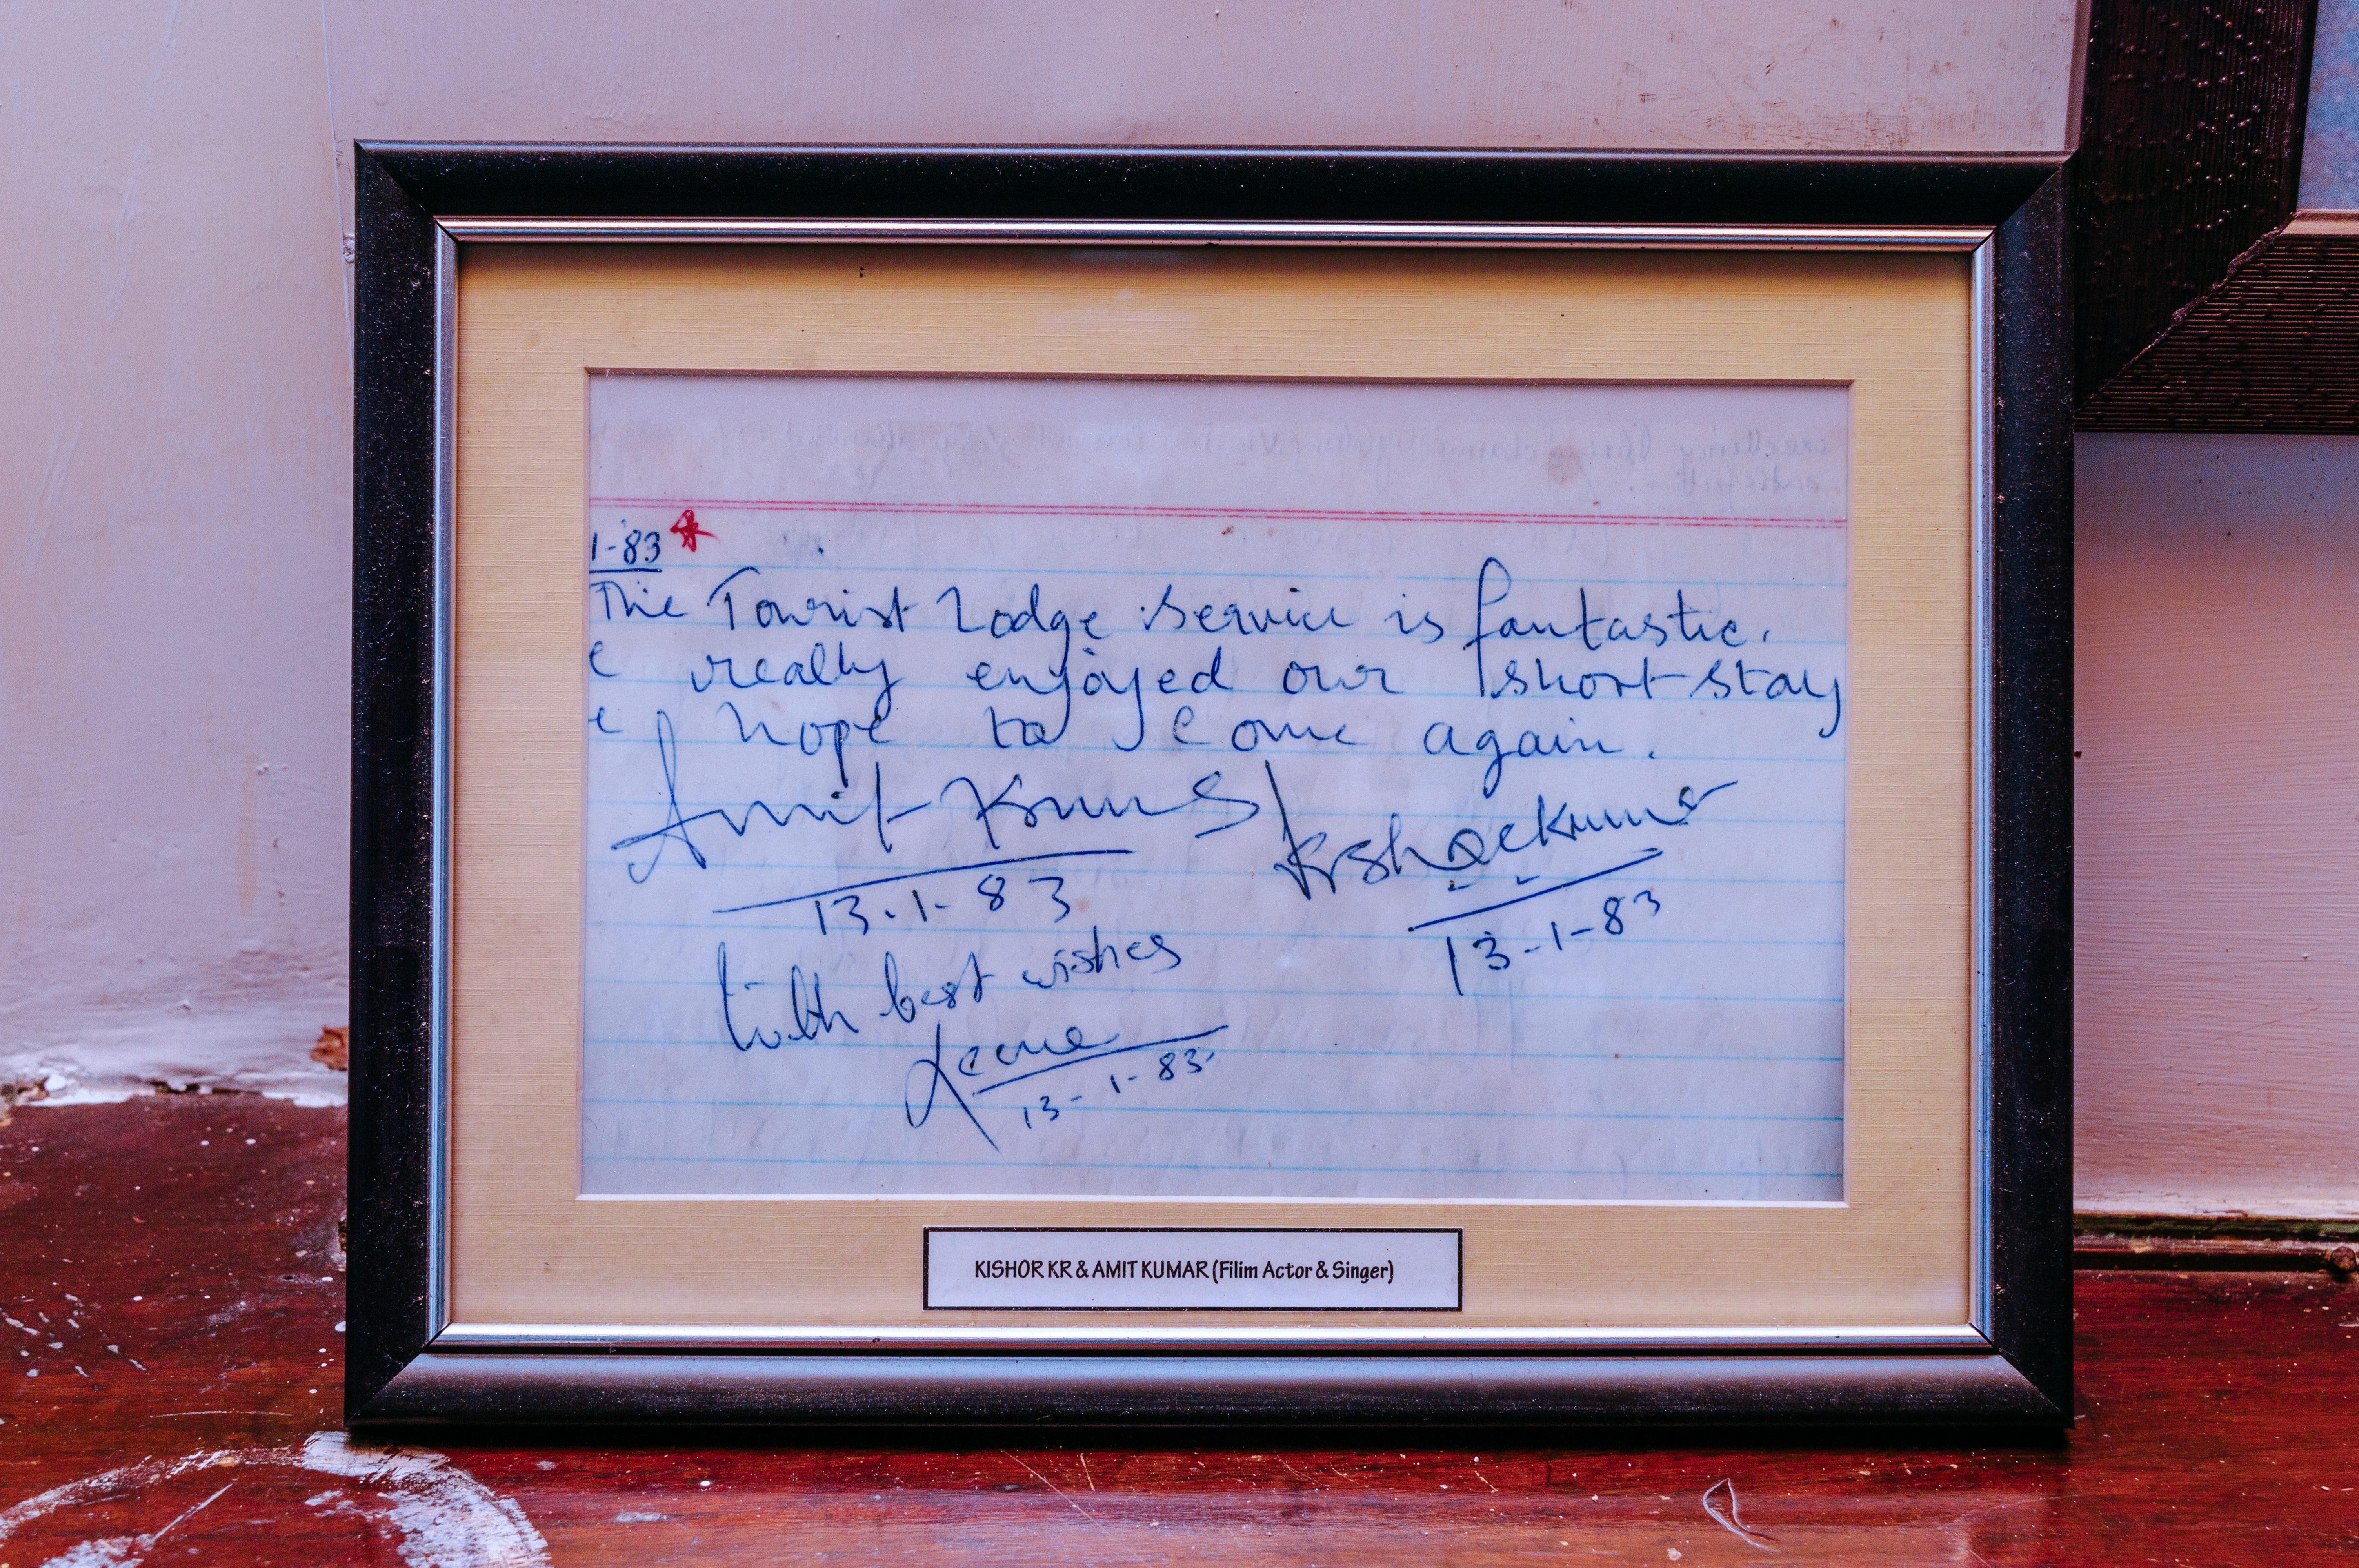 1-83
The Tourist Lodge service is fantastic.
e really enjoyed our short stay
e hope to come again.
Amit Kumar Kishore Kumar
13.1-83 13-1-83
With best wishes
Leena
13-1-83
KISHOR KR & AMIT KUMAR (Filim Actor & Singer)